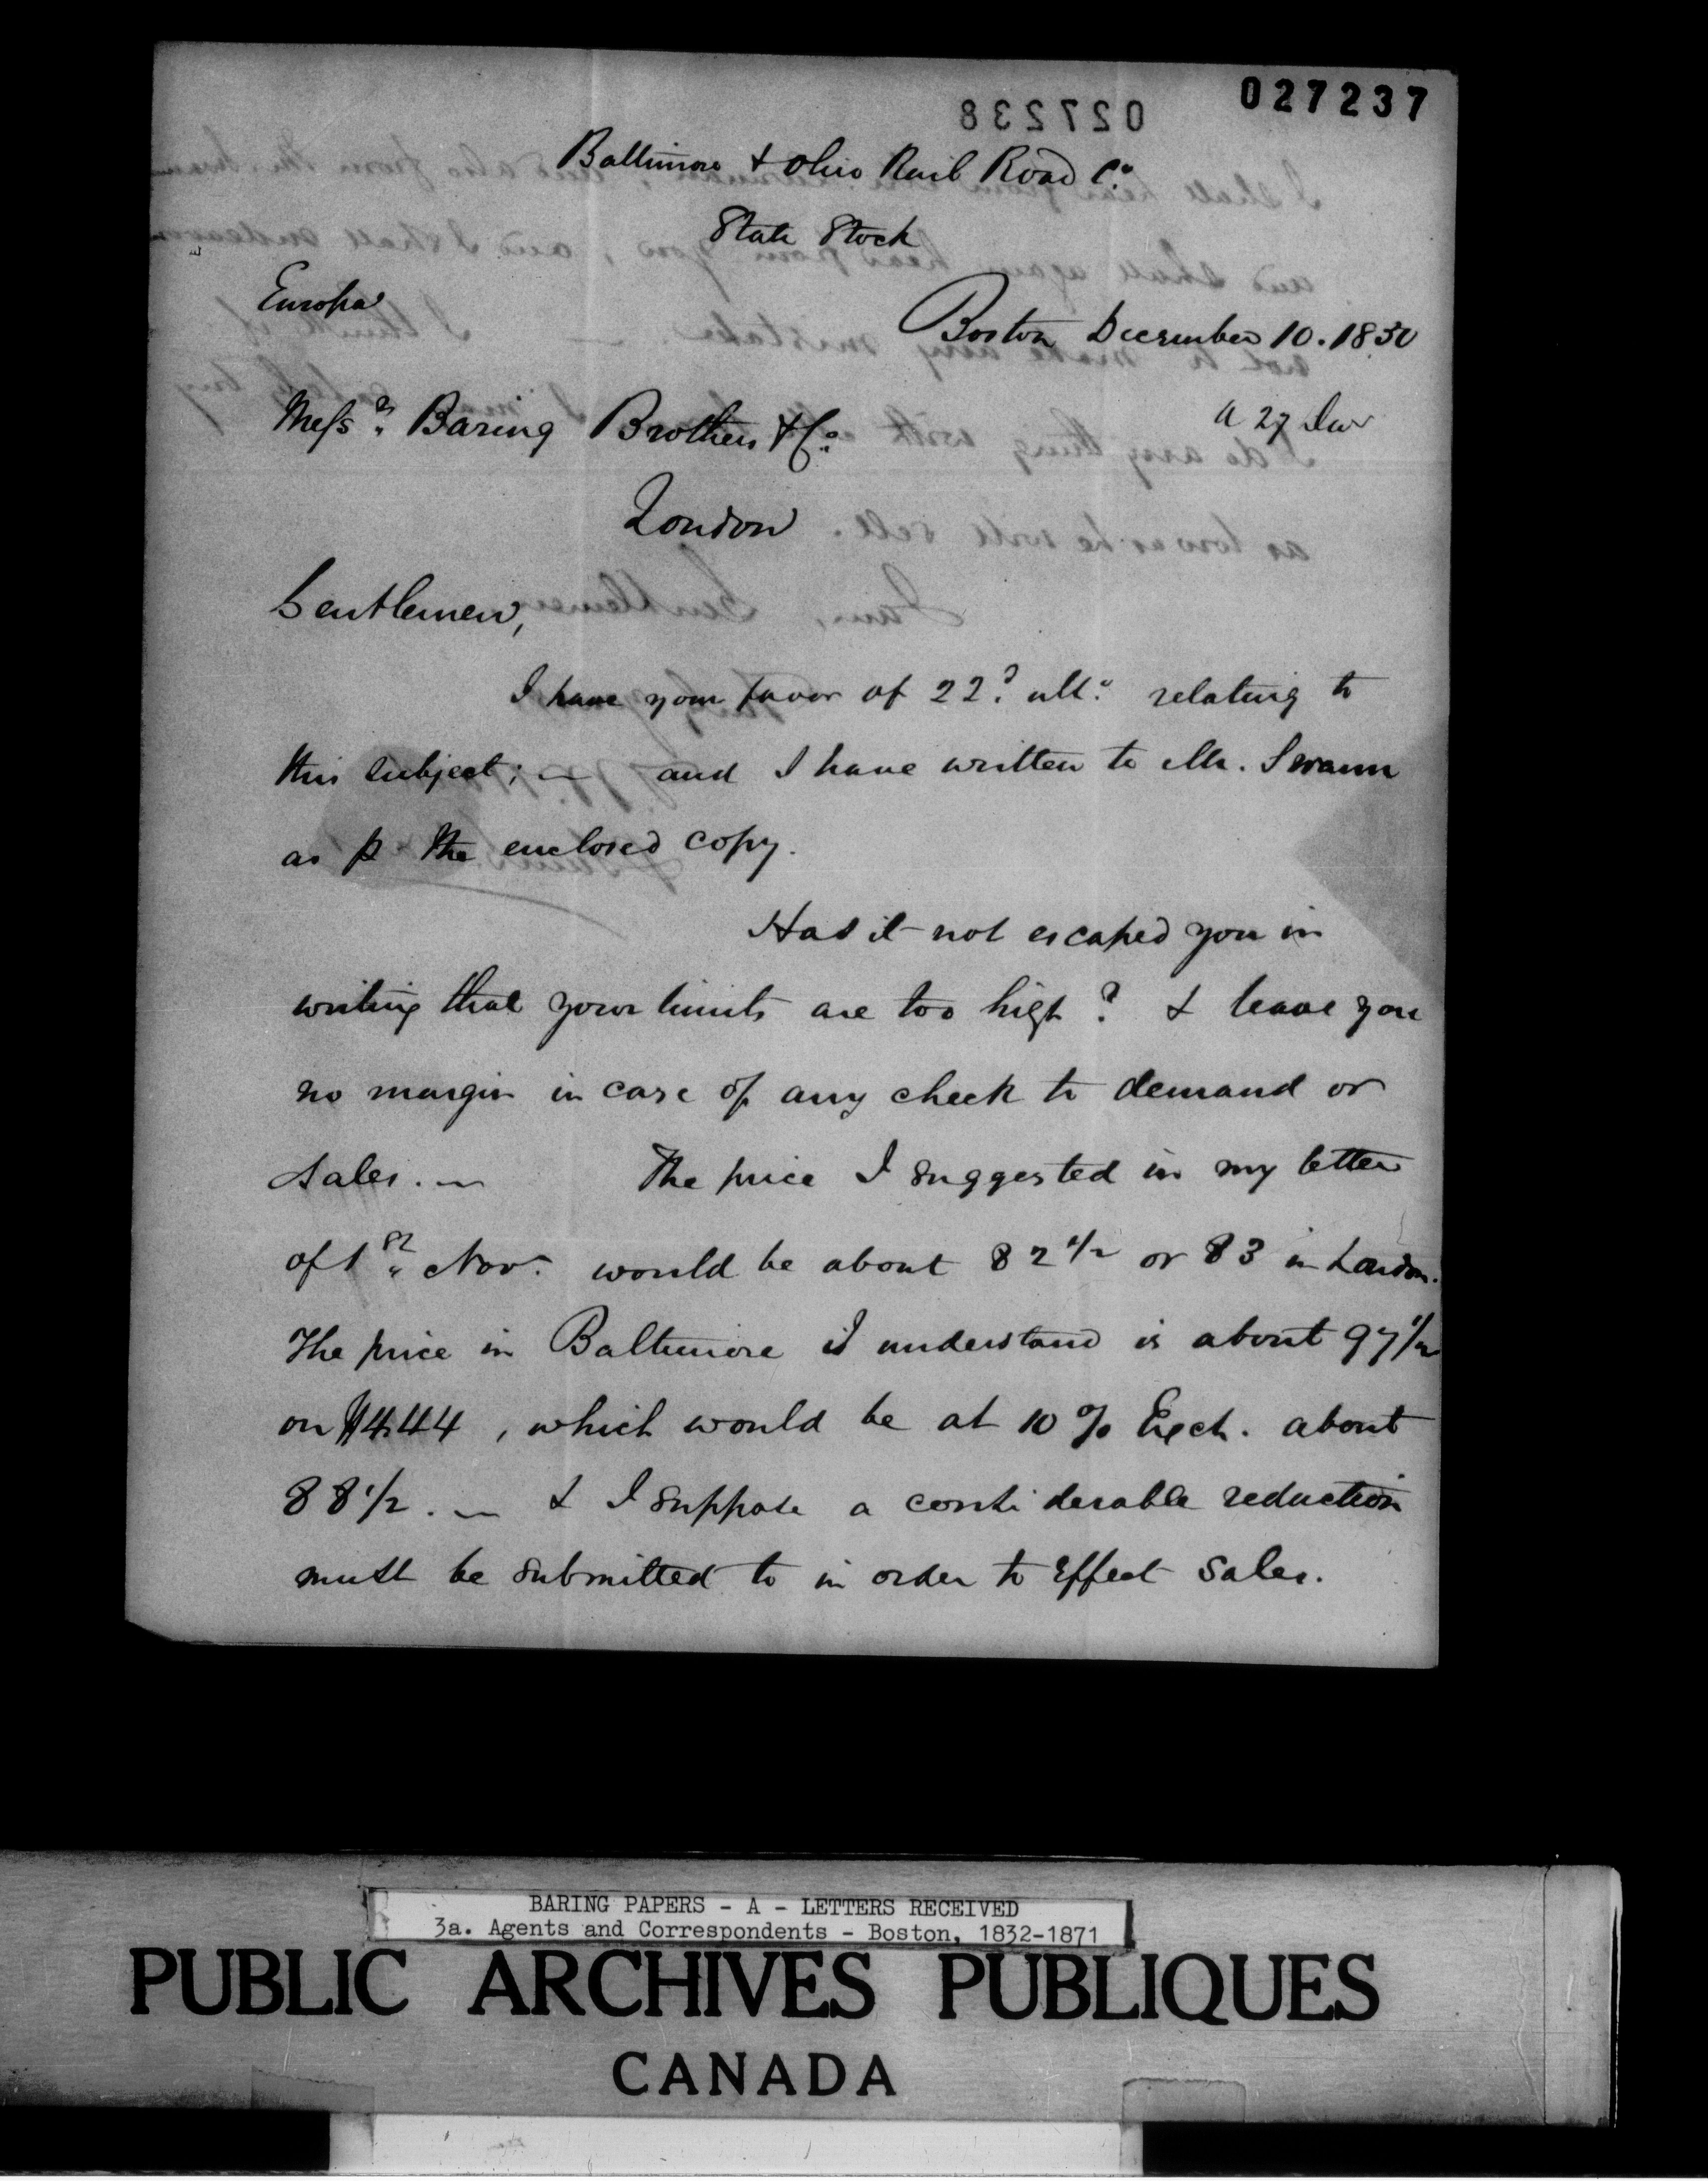 027237
027238
Baltimore & Ohio Rail Road Co.
State Stock
Europa
Boston December 10. 1850
a 27 Dec
Messrs. Baring Brothers & Co.
London
Gentlemen,
I have your favor of 22d. ulto. relating to
this subject; — and I have written to Mr. Swann
as p the enclosed copy.
Has it not escaped you in
writing that your limits are too high? & leave you
no margin in case of any check to demand or
sales. — The price I suggested in my letter
of 1st. Nov. would be about 82 1/2 or 83 in London.
The price in Baltimore is I understand is about 97 1/2
on $4.44, which would be at 10 % Exch. about
88 1/2. — & I suppose a considerable reduction
must be submitted to in order to effect sales.
BARING PAPERS - A - LETTERS RECEIVED
3a. Agents and Correspondents - Boston, 1832-1871
PUBLIC ARCHIVES PUBLIQUES
CANADA